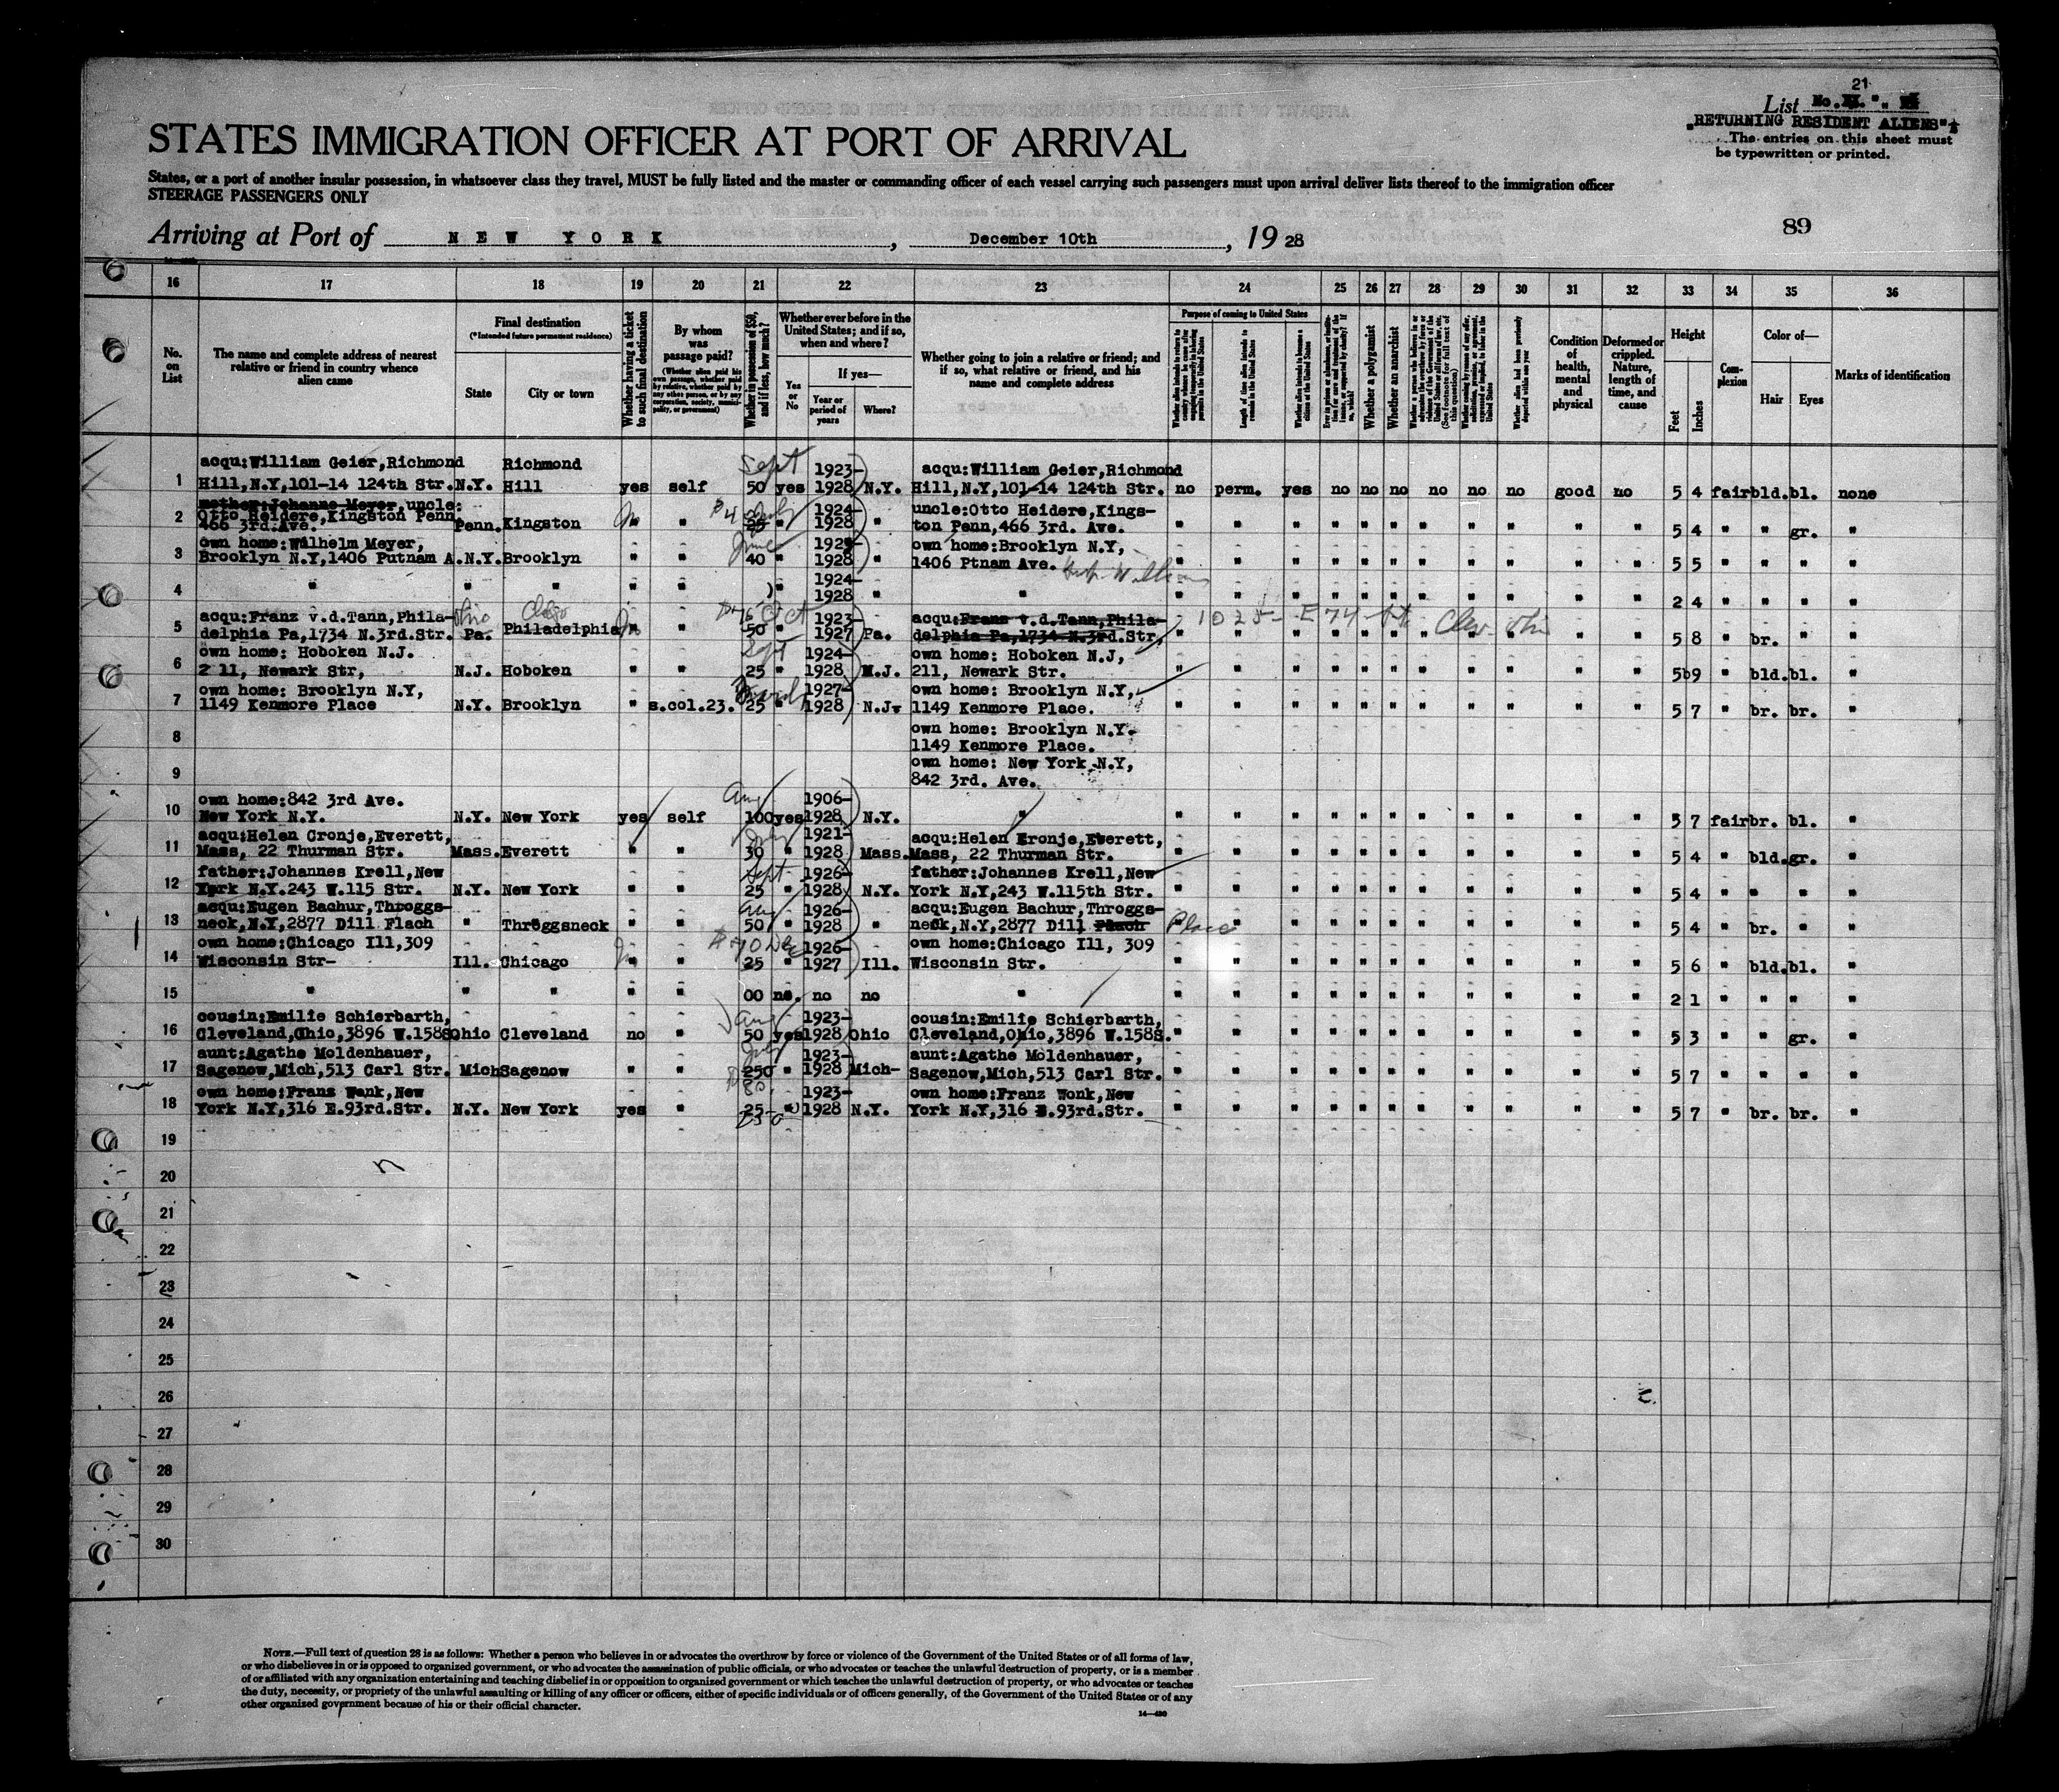 21
List No.
"RETURNING RESIDENT ALIENS"
The entries on this sheet must
be typewritten or printed.
STATES IMMIGRATION OFFICER AT PORT OF ARRIVAL
States, or a port of another insular possession, in whatsoever class they travel, MUST be fully listed and the master or commanding officer of each vessel carrying such passengers must upon arrival deliver lists thereof to the immigration officer
STEERAGE PASSENGERS ONLY
89
Arriving at Port of NEW YORK, December 10th, 19 28
16 17 18 19 20 21 22 23 24 25 26 27 28 29 30 31 32 33 34 35 36
No. on List
The name and complete address of nearest relative or friend in country whence alien came
Final destination
(*Intended future permanent residence)
State
City or town
Whether having a ticket to such final destination
By whom was passage paid?
(Whether alien paid his own passage, whether paid by relative, whether paid by any other person, or by any corporation, society, municipality, or government)
Whether in possession of $50, and if less, how much?
Whether ever before in the United States; and if so, when and where?
Yes or No
If yes—
Year or period of years
Where?
Whether going to join a relative or friend; and if so, what relative or friend, and his name and complete address
Purpose of coming to United States
Length of time alien intends to remain in the United States
Whether alien intends to become a citizen of the United States
Whether a polygamist
Whether an anarchist
Condition of health, mental and physical
Deformed or crippled. Nature, length of time, and cause
Height
Feet
Inches
Complexion
Color of—
Hair
Eyes
Marks of identification
1 acqu:William Geier,Richmond Richmond Sept 1923- acqu:William Geier,Richmond
Hill,N.Y,101-14 124th Str. N.Y. Hill yes self 50 yes 1928 N.Y. Hill,N.Y,101-14 124th Str. no perm. yes no no no no no no good no 5 4 fair bld. bl. none
mother:Johanne Meyer,uncle:
2 Otto Heidere,Kingston Penn 1924- uncle:Otto Heidere,Kings-
466 3rd.Ave. Penn. Kingston " 25 " 1928 " ton Penn,466 3rd. Ave. " " " " " " " " " " " 5 4 " " gr. "
3 own home:Wilhelm Meyer, June 192 - own home:Brooklyn N.Y,
Brooklyn N.Y,1406 Putnam A. N.Y. Brooklyn " " 40 " 1928 " 1406 Ptnam Ave. " " " " " " " " " " 5 5 " " " "
4 " " " " " " 1924-
1928 " " " " " " " " " " " " " 2 4 " " " "
5 acqu:Franz v.d.Tann,Phila- Ohio Oct 1923- acqu:Franz v.d.Tann,Phila- 1025- E 74 Clev- Ohio
delphia Pa,1734 N.3rd.Str. Pa. Philadelphia " 50 " 1927 Pa. delphia Pa,1734 N.3rd.Str. " " " " " " " " " " 5 8 " br. " "
6 own home: Hoboken N.J. Sept 1924- own home: Hoboken N.J,
2 11, Newark Str, N.J. Hoboken " " 25 " 1928 M.J. 211, Newark Str. " " " " " " " " " " " 5 9 " bld. bl. "
7 own home: Brooklyn N.Y, 1927- own home: Brooklyn N.Y,
1149 Kenmore Place N.Y. Brooklyn " s.col.23. 25 " 1928 N.J. 1149 Kenmore Place. " " " " " " " " " " " 5 7 " br. br. "
8 own home: Brooklyn N.Y.
1149 Kenmore Place.
9 own home: New York N.Y,
842 3rd. Ave.
10 own home:842 3rd Ave. Aug 1906-
New York N.Y. N.Y. New York yes self 100 yes 1928 N.Y. " " " " " " " " " " " " 5 7 fair br. bl. "
11 acqu:Helen Cronje,Everett, 1921- acqu:Helen Cronje,Everett,
Mass, 22 Thurman Str. Mass. Everett " " 30 " 1928 Mass. Mass, 22 Thurman Str. " " " " " " " " " " " 5 4 " bld. gr. "
12 father:Johannes Krell,New Sept 1926- father:Johannes Krell,New
York N.Y.243 W.115 Str. N.Y. New York " " 25 " 1928 N.Y. York N.Y,243 W.115th Str. " " " " " " " " " " " 5 4 " " " "
13 acqu:Eugen Bachur,Throggs- Aug 1926- acqu:Eugen Bachur,Throggs-
neck,N.Y,2877 Dill Flach " Throggsneck " " 50 " 1928 " neck,N.Y,2877 Dill Flach Place " " " " " " " " " " 5 4 " br. " "
14 own home:Chicago Ill,309 1926- own home:Chicago Ill, 309
Wisconsin Str- Ill. Chicago " " 25 " 1927 Ill. Wisconsin Str. " " " " " " " " " " " 5 6 " bld. bl. "
15 " " " " " 00 no. no no " " " " " " " " " " " " 2 1 " " " "
16 cousin:Emilie Schierbarth, 1923- cousin:Emilie Schierbarth,
Cleveland,Ohio,3896 W.158S. Ohio Cleveland no " 50 yes 1928 Ohio Cleveland,Ohio,3896 W.158S. " " " " " " " " " " " 5 3 " " gr. "
17 aunt:Agathe Moldenhauer, 1923- aunt:Agathe Moldenhauer,
Sagenow,Mich,513 Carl Str. Mich Sagenow " " 250 " 1928 Mich- Sagenow,Mich,513 Carl Str. " " " " " " " " " " " 5 7 " " " "
18 own home:Franz Wonk,New 1923- own home:Franz Wonk,New
York N.Y,316 E.93rd.Str. N.Y. New York yes " 25 " 1928 N.Y. York N.Y,316 E.93rd.Str. " " " " " " " " " " " 5 7 " br. br. "
19
20
21
22
23
24
25
26
27
28
29
30
NOTE.—Full text of question 28 is as follows: Whether a person who believes in or advocates the overthrow by force or violence of the Government of the United States or of all forms of law,
or who disbelieves in or is opposed to organized government, or who advocates the assassination of public officials, or who advocates or teaches the unlawful destruction of property, or is a member
of or affiliated with any organization entertaining and teaching disbelief in or opposition to organized government or which teaches the unlawful destruction of property, or who advocates or teaches
the duty, necessity, or propriety of the unlawful assaulting or killing of any officer or officers, either of specific individuals or of officers generally, of the Government of the United States or of any
other organized government because of his or their official character.
14—430